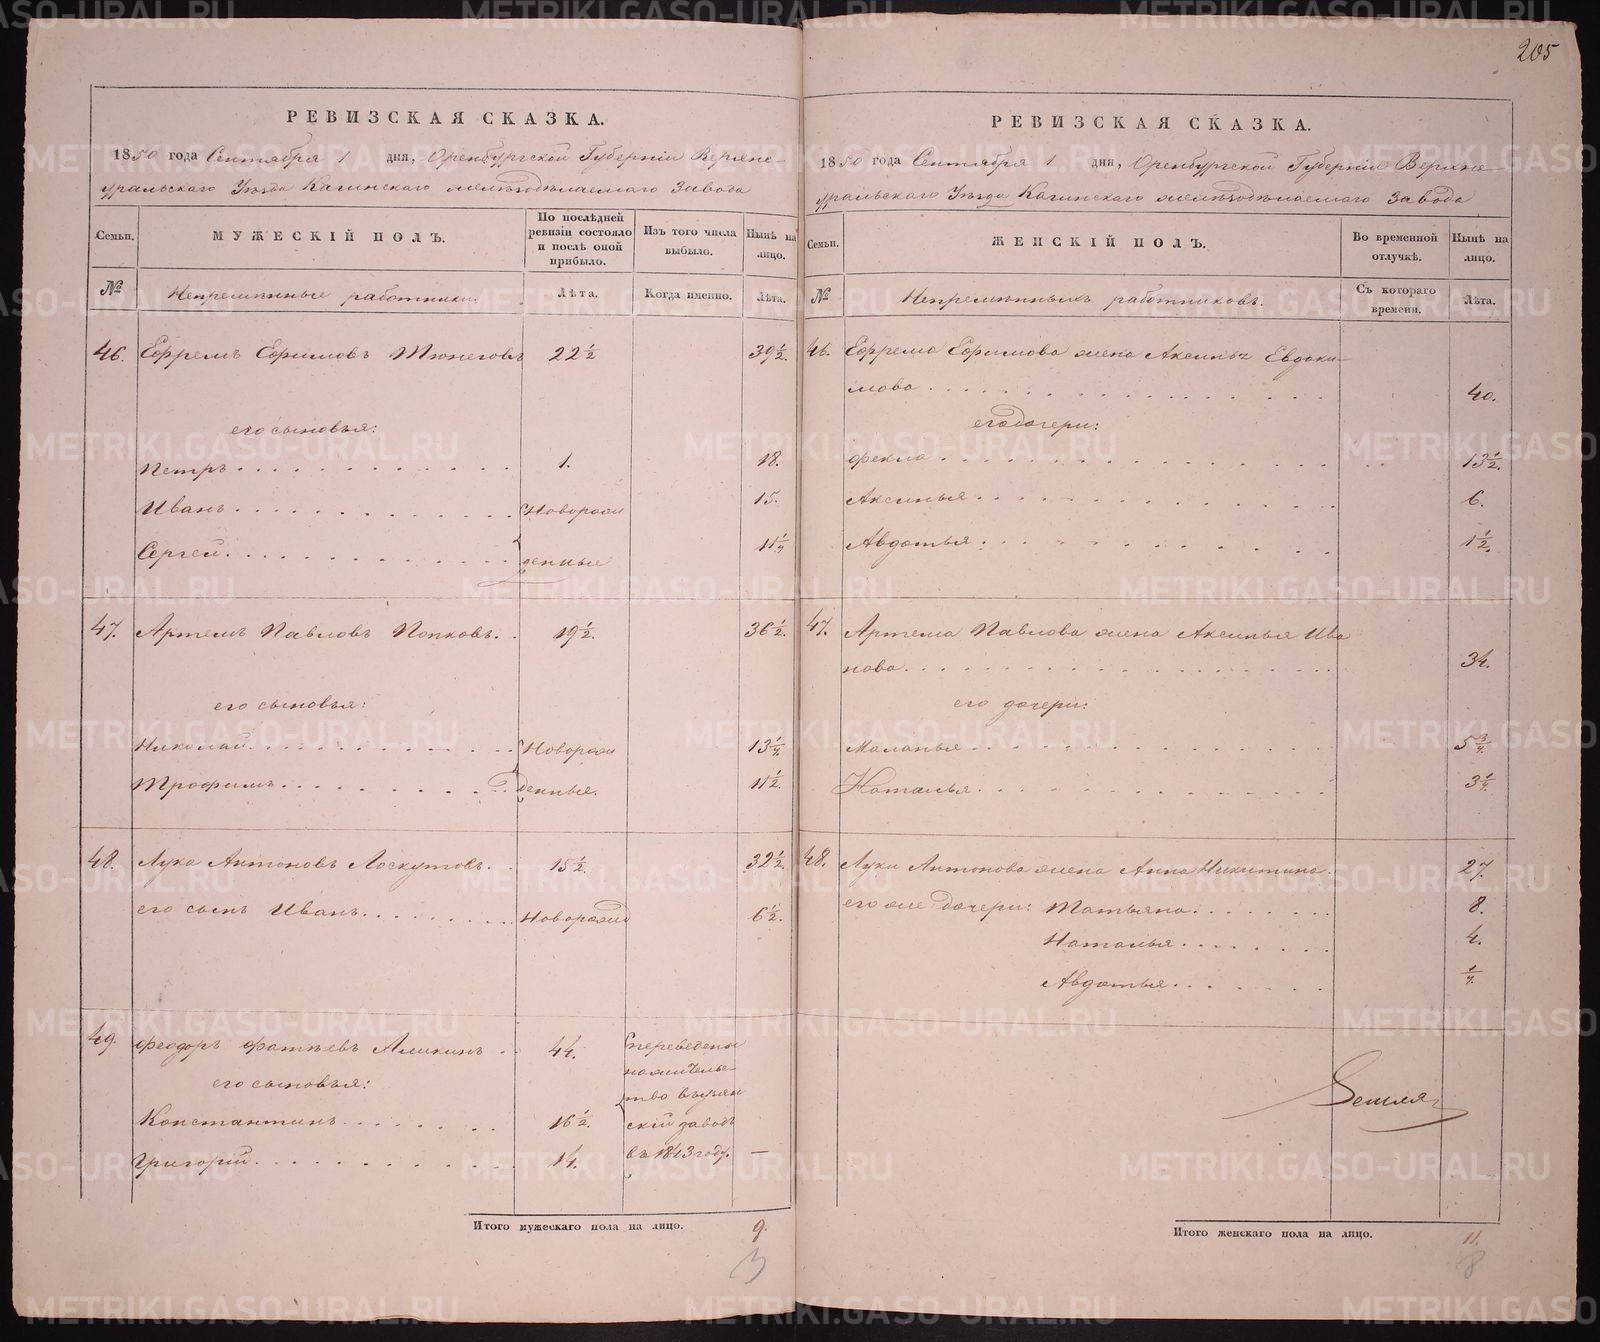 205
РЕВИЗСКАЯ СКАЗКА.
1850 года Сентября 1 дня, Оренбургской Губерніи Верхне-
уральскаго Уѣзда Кагинскаго желѣзодѣлаемаго Завода
Семьи. МУЖЕСКІЙ ПОЛЪ. По послѣдней ревизіи состояло и послѣ оной прибыло. Изъ того числа выбыло. Нынѣ на лицо.
№ Непремѣнные работники. Лѣта. Когда именно. Лѣта.
46. Ефремъ Ефимовъ 22½ 39½.
его сыновья:
Петръ 1. 18.
Иванъ Новорож 15.
Сергей денные 11¼
47. Артемъ Павловъ Попковъ. 19½. 36½.
его сыновья:
Николай Новорож 13¼
Трофимъ денные. 11½.
48. Лука Антоновъ Лоскутовъ. 15½. 32½.
его сынъ Иванъ Новорожд 6½.
49. Феодоръ Фатѣевъ 44. переведены
на жительс-
его сыновья:
тво въ
Константинъ 16½. скій заводъ
Григорій 14. въ 1843 году. —
Итого мужескаго пола на лицо. 9.
3
РЕВИЗСКАЯ СКАЗКА.
1850 года Сентября 1 дня, Оренбургской Губерніи Верхне-
уральскаго Уѣзда Кагинскаго желѣзодѣлаемаго Завода
Семьи. ЖЕНСКІЙ ПОЛЪ. Во временной отлучкѣ. Нынѣ на лицо.
№ Непремѣнныхъ работниковъ. Съ котораго времени. Лѣта.
46. Ефрема Ефимова жена Аксинья Евдоки-
мова 40.
его дочери:
Фекла 13½.
Аксинья 6.
Авдотья 1½.
47. Артема Павлова жена Аксинья Ива
нова 34.
его дочери:
Маланья 5¾.
Наталья 3¼.
48. Луки Антонова жена Анна Никитина. 27.
его же дочери: Татьяна 8.
Наталья 4.
Авдотья ¼.
Итого женскаго пола на лицо. 11.
8
METRIKI.GASO-URAL.RU